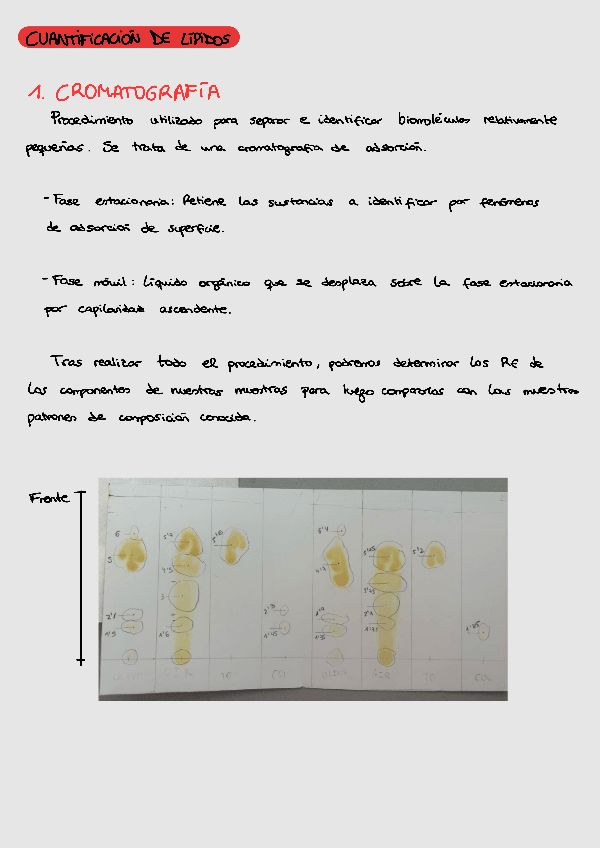 CUANTIFICACIÓN DE LÍPIDOS
1. CROMATOGRAFÍA
Procedimiento utilizado para separar e identificar biomoléculas relativamente
pequeñas. Se trata de una cromatografía de adsorción.
- Fase estacionaria: Retiene las sustancias a identificar por fenómenos
de adsorción de superficie.
- Fase móvil: Líquido orgánico que se desplaza sobre la fase estacionaria
por capilaridad ascendente.
Tras realizar todo el procedimiento, podremos determinar los RF de
los componentes de nuestras muestras para luego compararlas con las muestras
patrones de composición conocida.
Frente
6
5
1'5
5'4
4'5
3
1'6
5'6
1'45
6'4
4'7
5'2
TG
COL
SER
COL